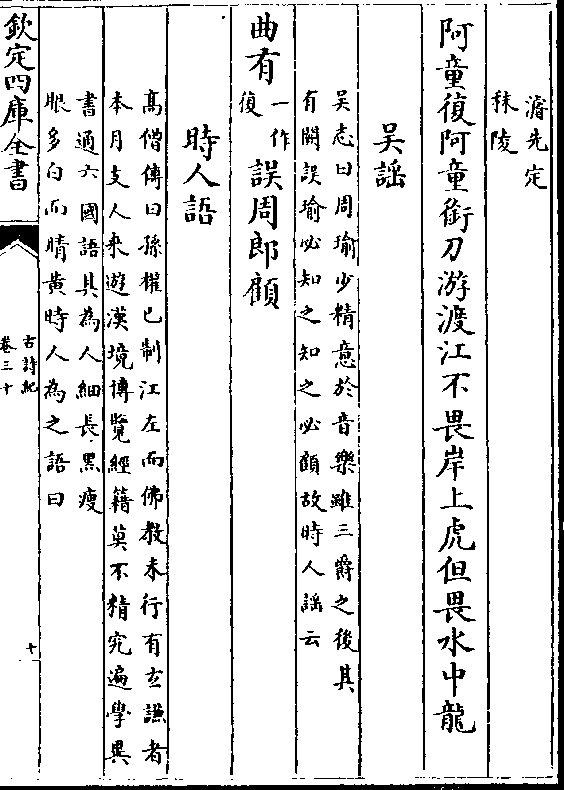 濬先定
秣陵
阿童復阿童銜刀游渡江不畏岸上虎但畏水中龍
吳謡
吳志曰周瑜少精意於音樂雖三爵之後其
有闕誤瑜必知之知之必顧故時人謡云
曲有一作復誤周郎顧
時人語
髙僧傳曰孫權已制江左而佛教未行有支謙者
本月支人來遊漢境博覽經籍莫不精究遍學異
書通六國語其為人細長黑瘦
眼多白而睛黄時人為之語曰
欽定四庫全書
古詩紀
卷三十
十